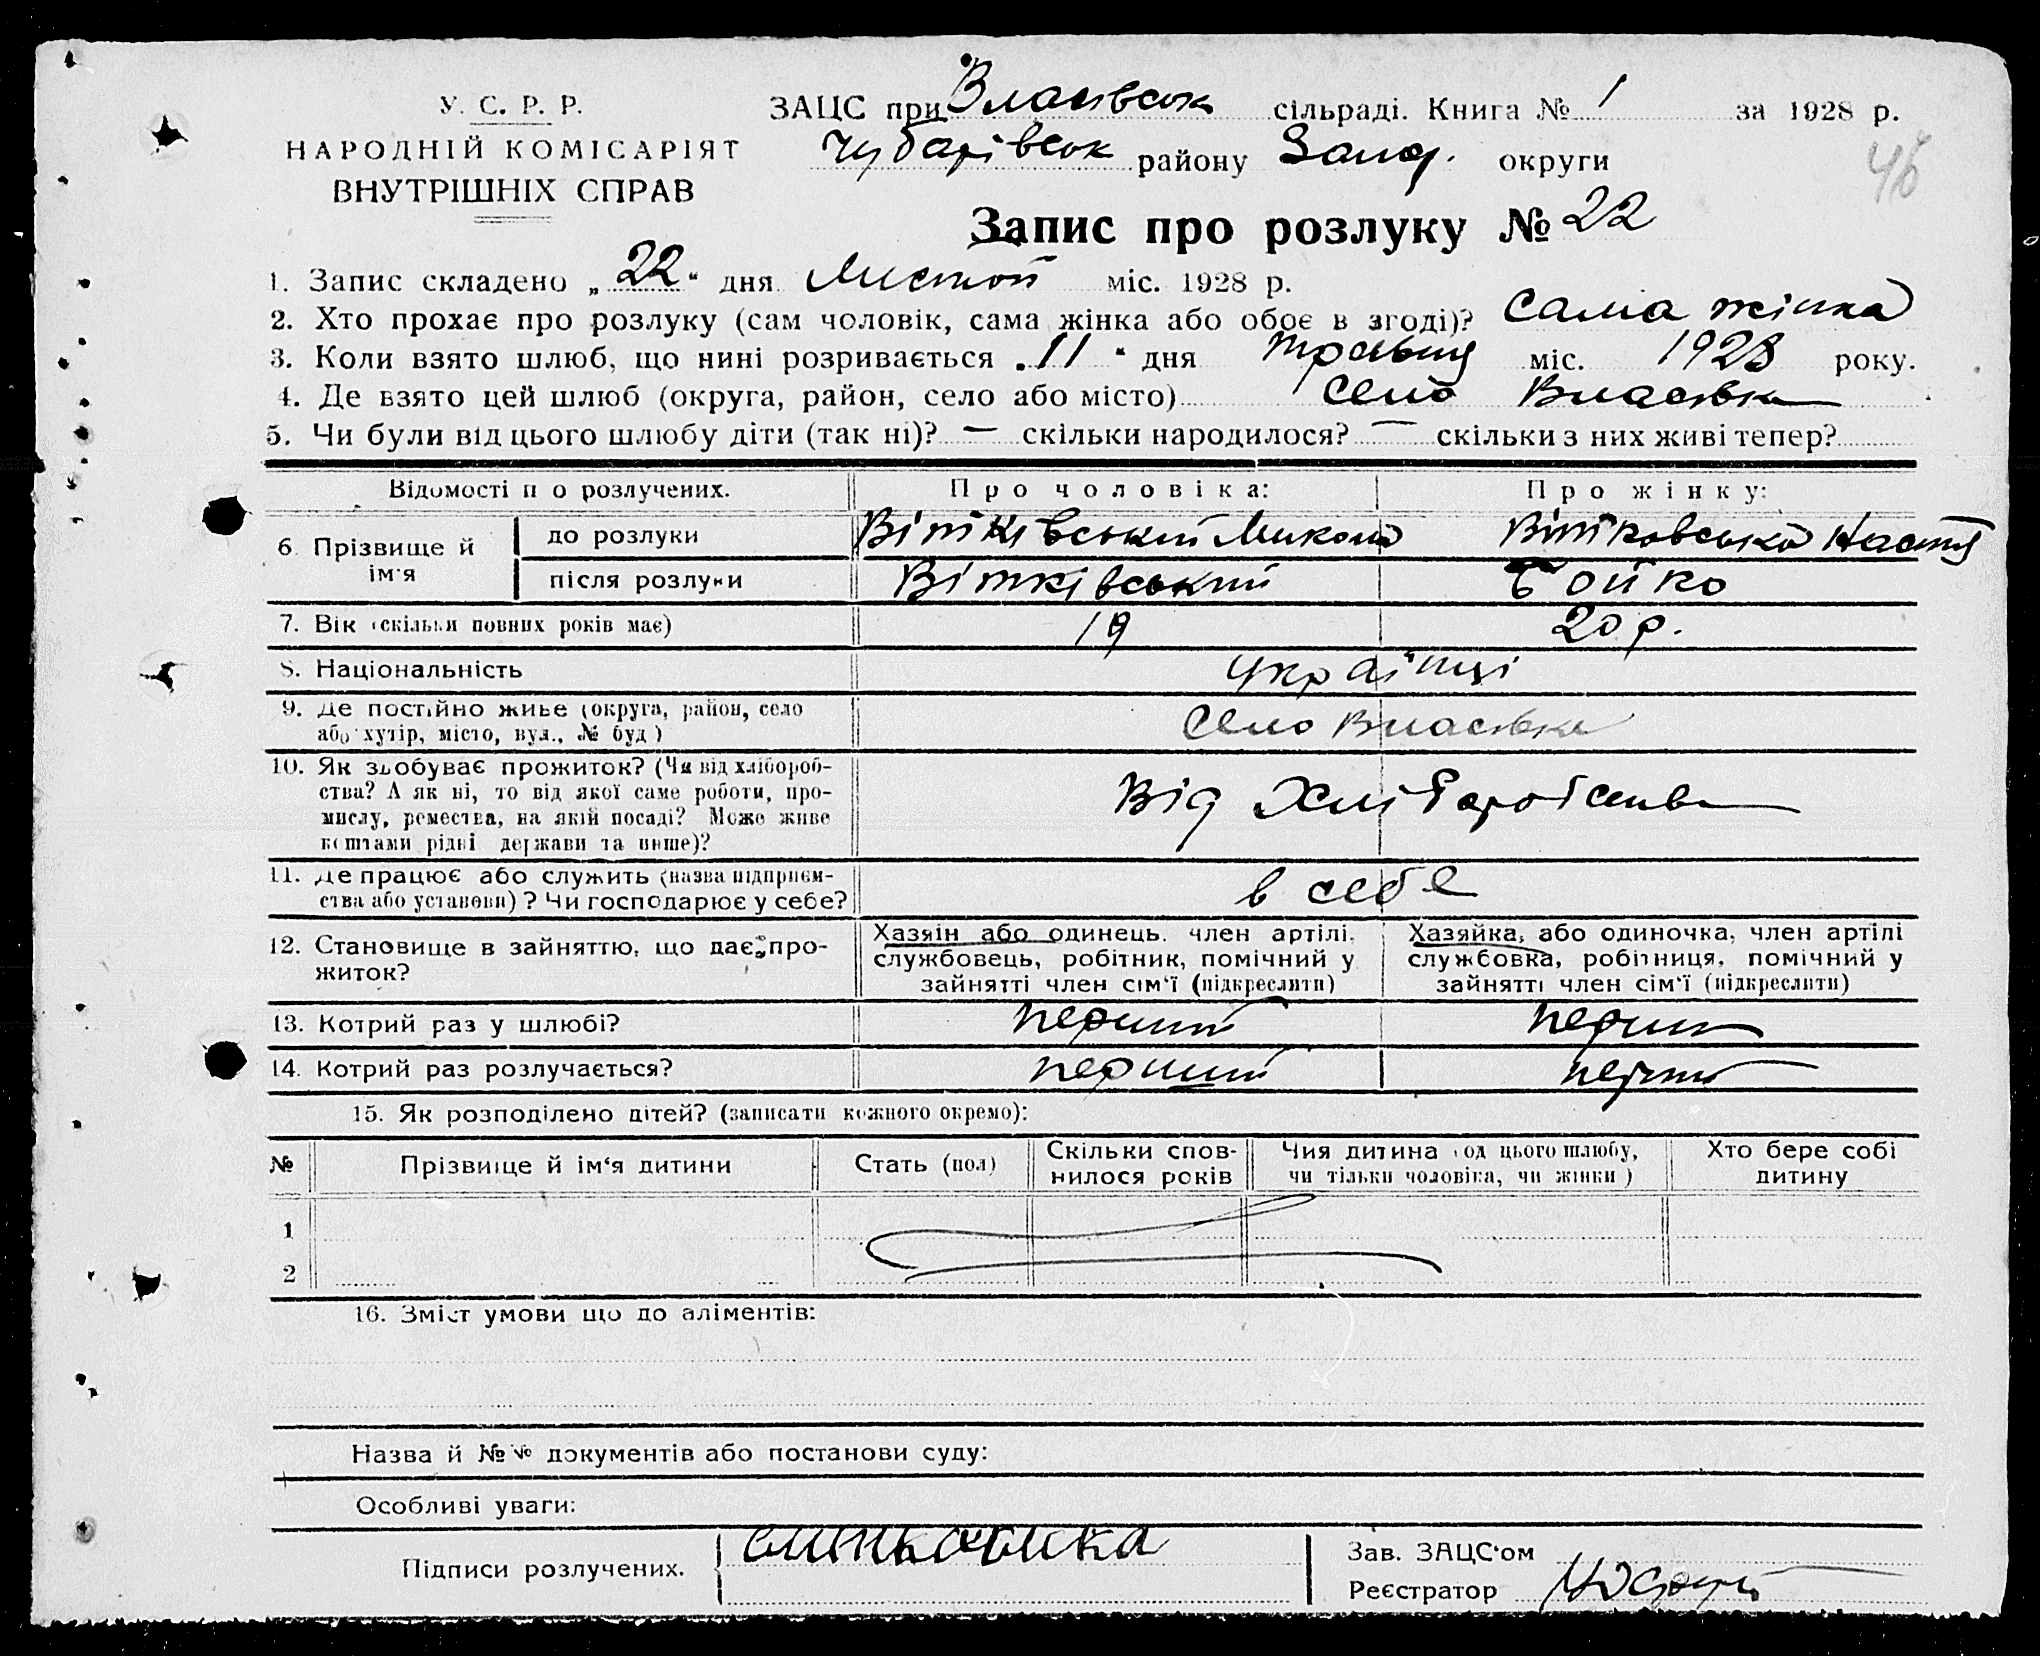 У. С. Р. Р.
НАРОДНІЙ КОМІСАРІЯТ
ВНУТРІШНІХ СПРАВ
ЗАЦС при Власівськ сільраді. Книга № 1 за 1928 р.
Чубарівськ району Запор. округи
46
Запис про розлуку № 22
1. Запис складено „22“ дня Листоп міс. 1928 р.
2. Хто прохає про розлуку (сам чоловік, сама жінка або обоє в згоді)? Сама жінка
3. Коли взято шлюб, що нині розривається „11“ дня травня міс. 1928 року.
4. Де взято цей шлюб (округа, район, село або місто) село Власівка
5. Чи були від цього шлюбу діти (так ні)? — скільки народилося? — скільки з них живі тепер?
Відомості п о розлучених. Про чоловіка: Про жінку:
6. Прізвище й ім'я до розлуки Вітківський Микола Вітковська Настя
після розлуки Вітківський Бойко
7. Вік (скільки повних років має) 19 20 р.
8. Національність Українці
9. Де постійно живе (округа, район, село
або хутір, місто, вул., № буд.) Село Власівка
10. Як здобуває прожиток? (Чи від хлібороб-
ства? А як ні, то від якої саме роботи, про-
мислу, ремества, на якій посаді? Може живе
коштами рідні держави та инше)? Від Хліборобства
11. Де працює або служить (назва підприєм-
ства або установи)? Чи господарює у себе? в себе
12. Становище в зайняттю, що дає про-
житок?
Хазяін або одинець. член артілі,
службовець, робітник, помічний у
зайнятті член сім'ї (підкреслити)
Хазяйка, або одиночка, член артілі
службовка, робітниця, помічний у
зайнятті член сім'ї (підкреслити)
13. Котрий раз у шлюбі? перший перший
14. Котрий раз розлучається? перший перший
15. Як розподілено дітей? (записати кожного окремо):
№ Прізвище й ім'я дитини Стать (пол) Скільки спов-
нилося років Чия дитина (од цього шлюбу,
чи тільки чоловіка, чи жінки) Хто бере собі
дитину
1
2
16. Зміст умови що до аліментів:
Назва й №№ документів або постанови суду:
Особливі уваги:
Підписи розлучених.
Зав. ЗАЦС'ом
Реєстратор